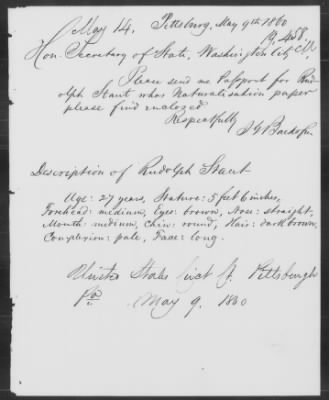 May 14. Pittsburg, May 9th 1860
19,458.
Hon. Secretary of State, Washington City
Please send me Passport for Rud
olph Staut whos Naturalisation paper
please find enclosed
Respectfully
Description of Rudolph Staut
Age: 27 years, Stature: 5 feet 6 inches,
Forehead: medium, Eyes: brown, Nose: straight,
Mouth: medium, Chin: round, Hair: dark brown,
Complexion: pale, Face: long.
United States Pittsburgh
Pa May 9. 1860